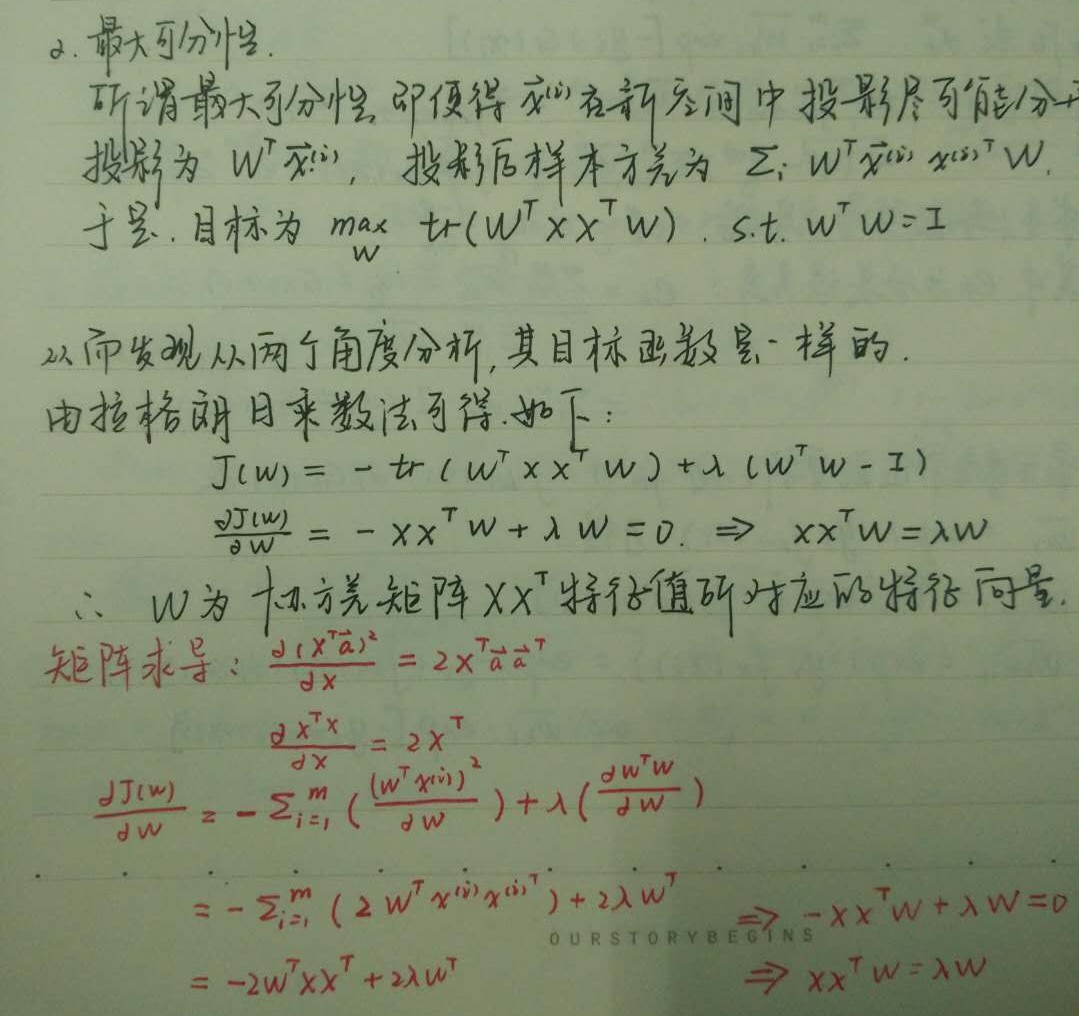 2. 最大可分性.
所谓最大可分性, 即使得 x⃗⁽ⁱ⁾ 在新空间中投影尽可能分开
投影为 Wᵀx⃗⁽ⁱ⁾, 投影后样本方差为 Σᵢ Wᵀx⃗⁽ⁱ⁾x⁽ⁱ⁾ᵀW.
于是, 目标为 max_W tr(WᵀXXᵀW), s.t. WᵀW = I
从而发现从两个角度分析, 其目标函数是一样的.
由拉格朗日乘数法可得.如下:
J(W) = - tr(WᵀXXᵀW) + λ(WᵀW - I)
∂J(W)/∂W = - XXᵀW + λW = 0. ⇒ XXᵀW = λW
∴ W为协方差矩阵XXᵀ特征值所对应的特征向量.
矩阵求导: ∂(Xᵀa⃗)²/∂X = 2Xᵀa⃗a⃗ᵀ
∂XᵀX/∂X = 2Xᵀ
∂J(W)/∂W = - Σᵢ₌₁ᵐ ((Wᵀx⁽ⁱ⁾)²/∂W) + λ(∂WᵀW/∂W)
= - Σᵢ₌₁ᵐ (2Wᵀx⁽ⁱ⁾x⁽ⁱ⁾ᵀ) + 2λWᵀ ⇒ -XXᵀW + λW = 0
OURSTORYBEGINS
= -2WᵀXXᵀ + 2λWᵀ ⇒ XXᵀW = λW